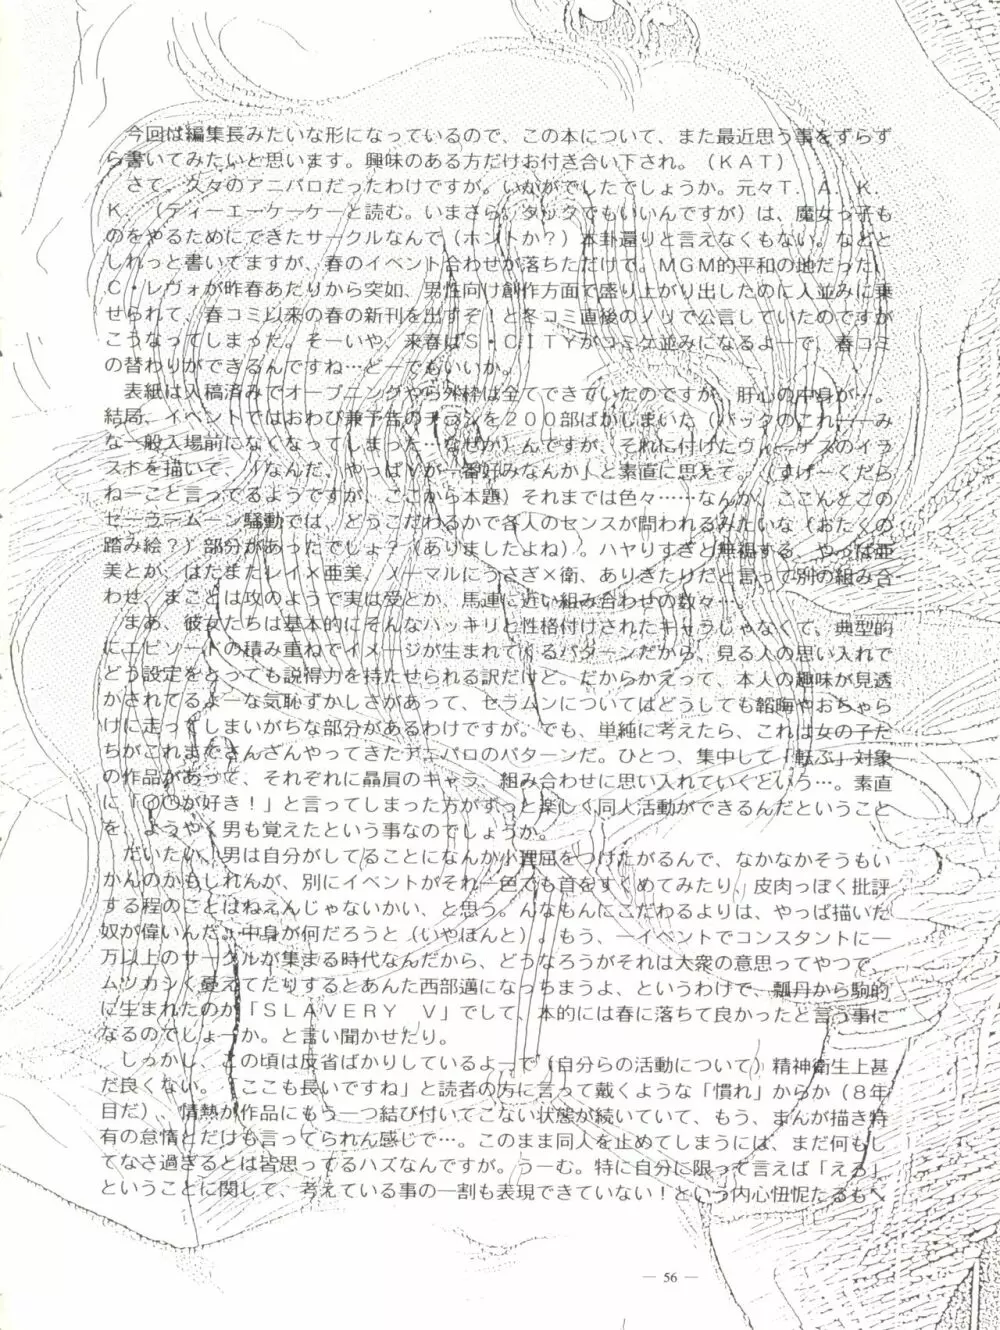 今回は編集長みたいな形になっているので、この本について、また最近思う事をずらず
ら書いてみたいと思います。興味のある方だけお付き合い下され。（ＫＡＴ）
さて、久々のアニパロだったわけですが。いかがでしたでしょうか。元々Ｔ．Ａ．Ｋ．
Ｋ．（ティーエーケーケーと読む。いまさら。タックでもいいんですが）は、魔女っ子も
のをやるためにできたサークルなんで（ホントか？）本卦還りと言えなくもない。などと
しれっと書いてますが、春のイベント合わせが落ちただけで。ＭＧＭ的平和の地だった、
Ｃ・レヴォが昨春あたりから突如、男性向け創作方面で盛り上がり出したのに人並みに乗
せられて、春コミ以来の春の新刊を出すぞ！と冬コミ直後のノリで公言していたのですが
こうなってしまった。そーいや、来春はＳ・ＣＩＴＹがコミケ並みになるよーで、春コミ
の替わりができるんですね…どーでもいいか。
表紙は入稿済みでオープニングやら外枠は全てできていたのですが、肝心の中身が…。
結局、イベントではおわび兼予告のチラシを２００部ばかしまいた（バックのこれ――み
な一般入場前になくなってしまった…なぜか）んですが、それに付けたヴィーナスのイラ
ストを描いて、「なんだ、やっぱＶが一番好みなんか」と素直に思えて。（すげーくだら
ねーこと言ってるようですが、ここから本題）それまでは色々……なんか、ここんとこの
セーラームーン騒動では、どうこだわるかで各人のセンスが問われるみたいな（おたくの
踏み絵？）部分があったでしょ？（ありましたよね）。ハヤりすぎと無視する、やっぱ亜
美とか、はたまたレイ×亜美、ノーマルにうさぎ×衛、ありきたりだと言って別の組み合
わせ、まことは攻のようで実は受とか、馬連に近い組み合わせの数々…。
まあ、彼女たちは基本的にそんなハッキリと性格付けされたキャラじゃなくて、典型的
にエピソードの積み重ねでイメージが生まれてくるパターンだから、見る人の思い入れで
どう設定をとっても説得力を持たせられる訳だけど。だからかえって、本人の趣味が見透
かされてるよーな気恥ずかしさがあって、セラムンについてはどうしても韜晦やおちゃら
けに走ってしまいがちな部分があるわけですが。でも、単純に考えたら、これは女の子た
ちがこれまでさんざんやってきたアニパロのパターンだ。ひとつ、集中して「転ぶ」対象
の作品があって、それぞれに贔屓のキャラ、組み合わせに思い入れていくという…。素直
に「〇〇が好き！」と言ってしまった方がずっと楽しく同人活動ができるんだということ
を、ようやく男も覚えたという事なのでしょうか。
だいたい、男は自分がしてることになんか小理屈をつけたがるんで、なかなかそうもい
かんのかもしれんが、別にイベントがそれ一色でも首をすくめてみたり、皮肉っぽく批評
する程のことはねえんじゃないかい、と思う。んなもんにこだわるよりは、やっぱ描いた
奴が偉いんだ。中身が何だろうと（いやほんと）。もう、一イベントでコンスタントに一
万以上のサークルが集まる時代なんだから、どうなろうがそれは大衆の意思ってやつで、
ムツカシく憂えてたりするとあんた西部邁になっちまうよ、というわけで、瓢丹から駒的
に生まれたのが「ＳＬＡＶＥＲＹ　Ｖ」でして、本的には春に落ちて良かったと言う事に
なるのでしょーか。と言い聞かせたり。
しっかし、この頃は反省ばかりしているよーで（自分らの活動について）精神衛生上甚
だ良くない。「ここも長いですね」と読者の方に言って戴くような「慣れ」からか（８年
目だ）、情熱が作品にもう一つ結び付いてこない状態が続いていて、もう、まんが描き特
有の怠惰とだけも言ってられん感じで…。このまま同人を止めてしまうには、まだ何もし
てなさ過ぎるとは皆思ってるハズなんですが。うーむ。特に自分に限って言えば「えろ」
ということに関して、考えている事の一割も表現できていない！という内心忸怩たるもへ
— 56 —